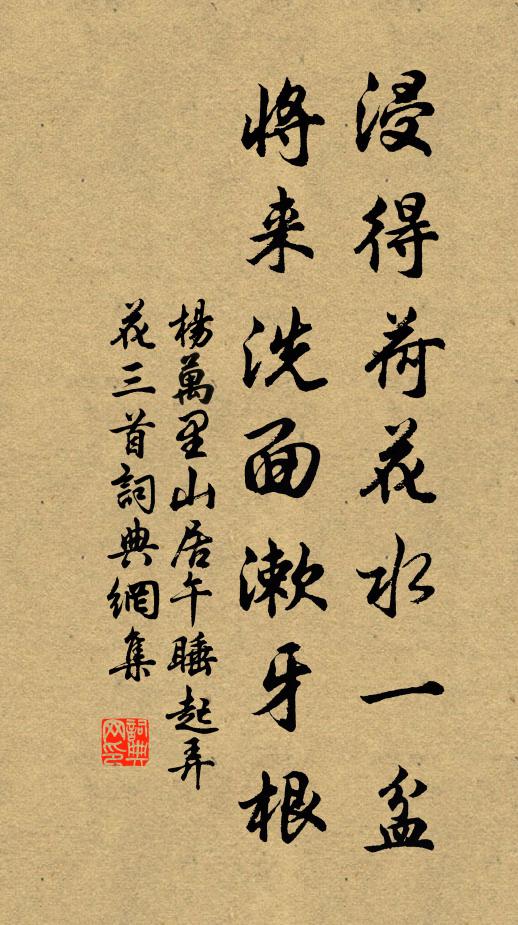 浸得荷花水一盆
将来洗面漱牙根
楊萬里山居午睡起弄
花三首詞典網集
詞典
网印